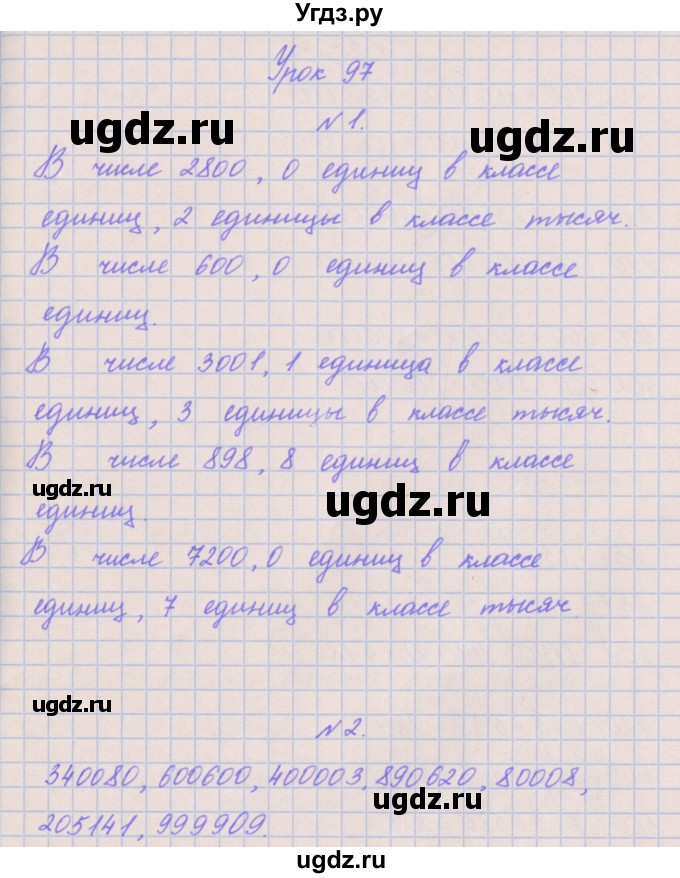 Угдз.ру
Урок 97
ugdz.ru ugdz.ru
№1.
В числе 2800, 0 единиц в классе
единиц, 2 единицы в классе тысяч.
В числе 600, 0 единиц в классе
единиц.
В числе 3001, 1 единица в классе
единиц, 3 единицы в классе тысяч.
В числе 898, 8 единиц в классе
ugdz.ru ugdz.ru
единиц.
В числе 7200, 0 единиц в классе
единиц, 7 единиц в классе тысяч
ugdz.ru
№2.
340080, 600600, 400003, 890620, 80008,
ugdz.ru
205141, 999909.
ugdz.ru